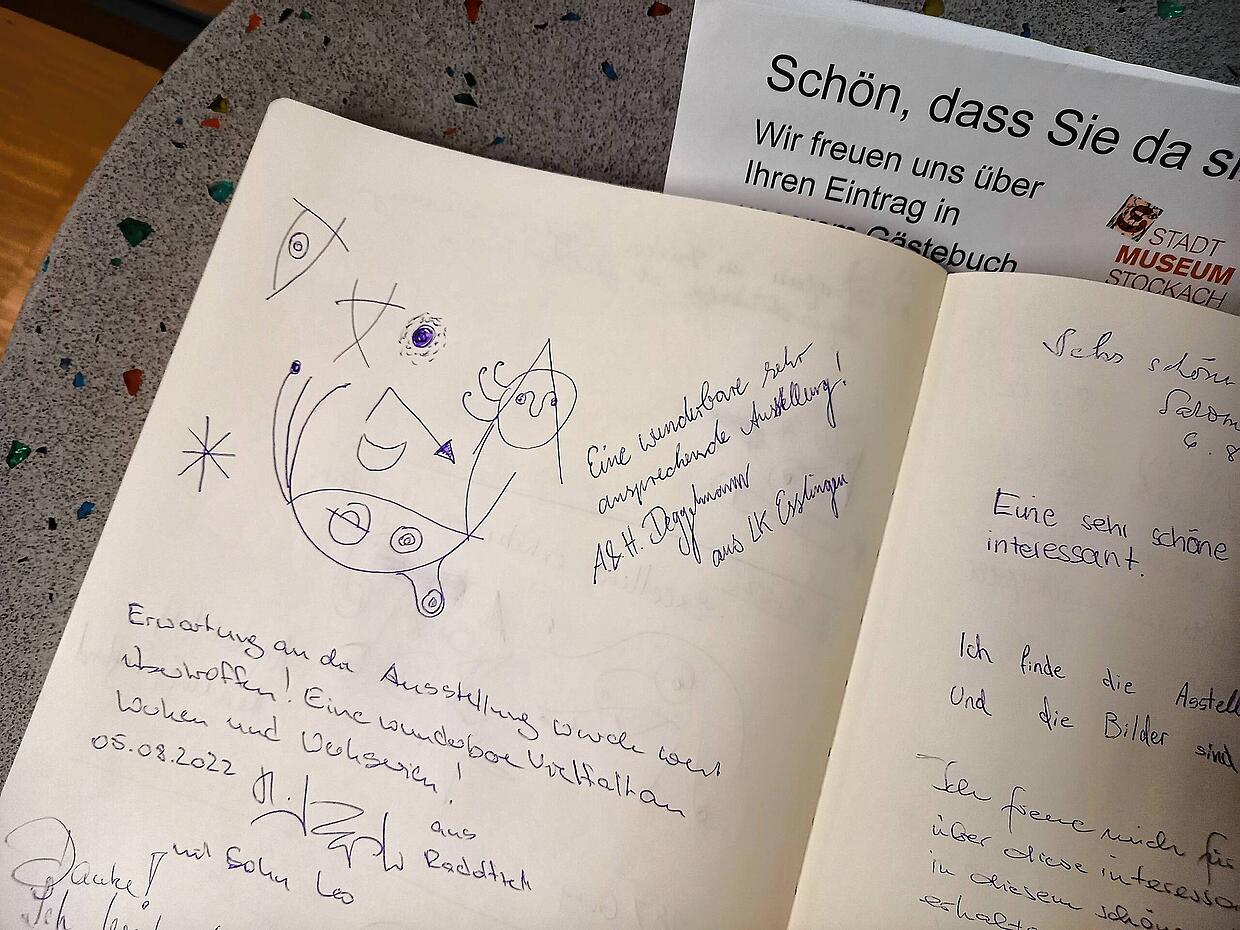 Schön, dass Sie da si
Wir freuen uns über
Ihren Eintrag in
Gästebuch
STADT
MUSEUM
STOCKACH
Eine wunderbare sehr
ansprechende Ausstellung!
A&H. Deggelmann
aus LK Esslingen
Erwartung an die Ausstellung wurde weit
übertroffen! Eine wunderbare Vielfalt an
und
05.08.2022
aus
mit Sohn Leo
Danke!
Ich
Sehr schön
6. 8
Eine sehr schöne
interessant.
Ich finde die Asstell
Und die Bilder sind
Ich freue mich für
über diese interessa
in diesem schön
erhalt